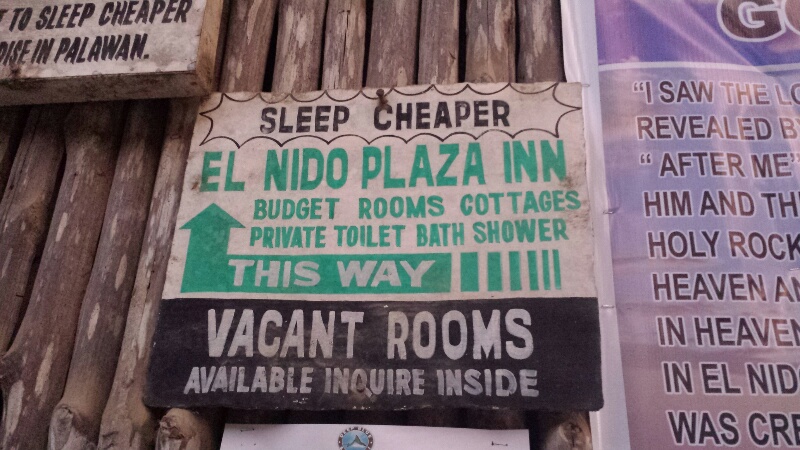 T TO SLEEP CHEAPER
DISE IN PALAWAN.
SLEEP CHEAPER
EL NIDO PLAZA INN
BUDGET ROOMS COTTAGES
PRIVATE TOILET BATH SHOWER
THIS WAY
VACANT ROOMS
AVAILABLE INQUIRE INSIDE
GO
"I SAW THE LO
REVEALED B
" AFTER ME"
HIM AND TH
HOLY ROCK
HEAVEN AN
IN HEAVEN
IN EL NID
WAS CRE